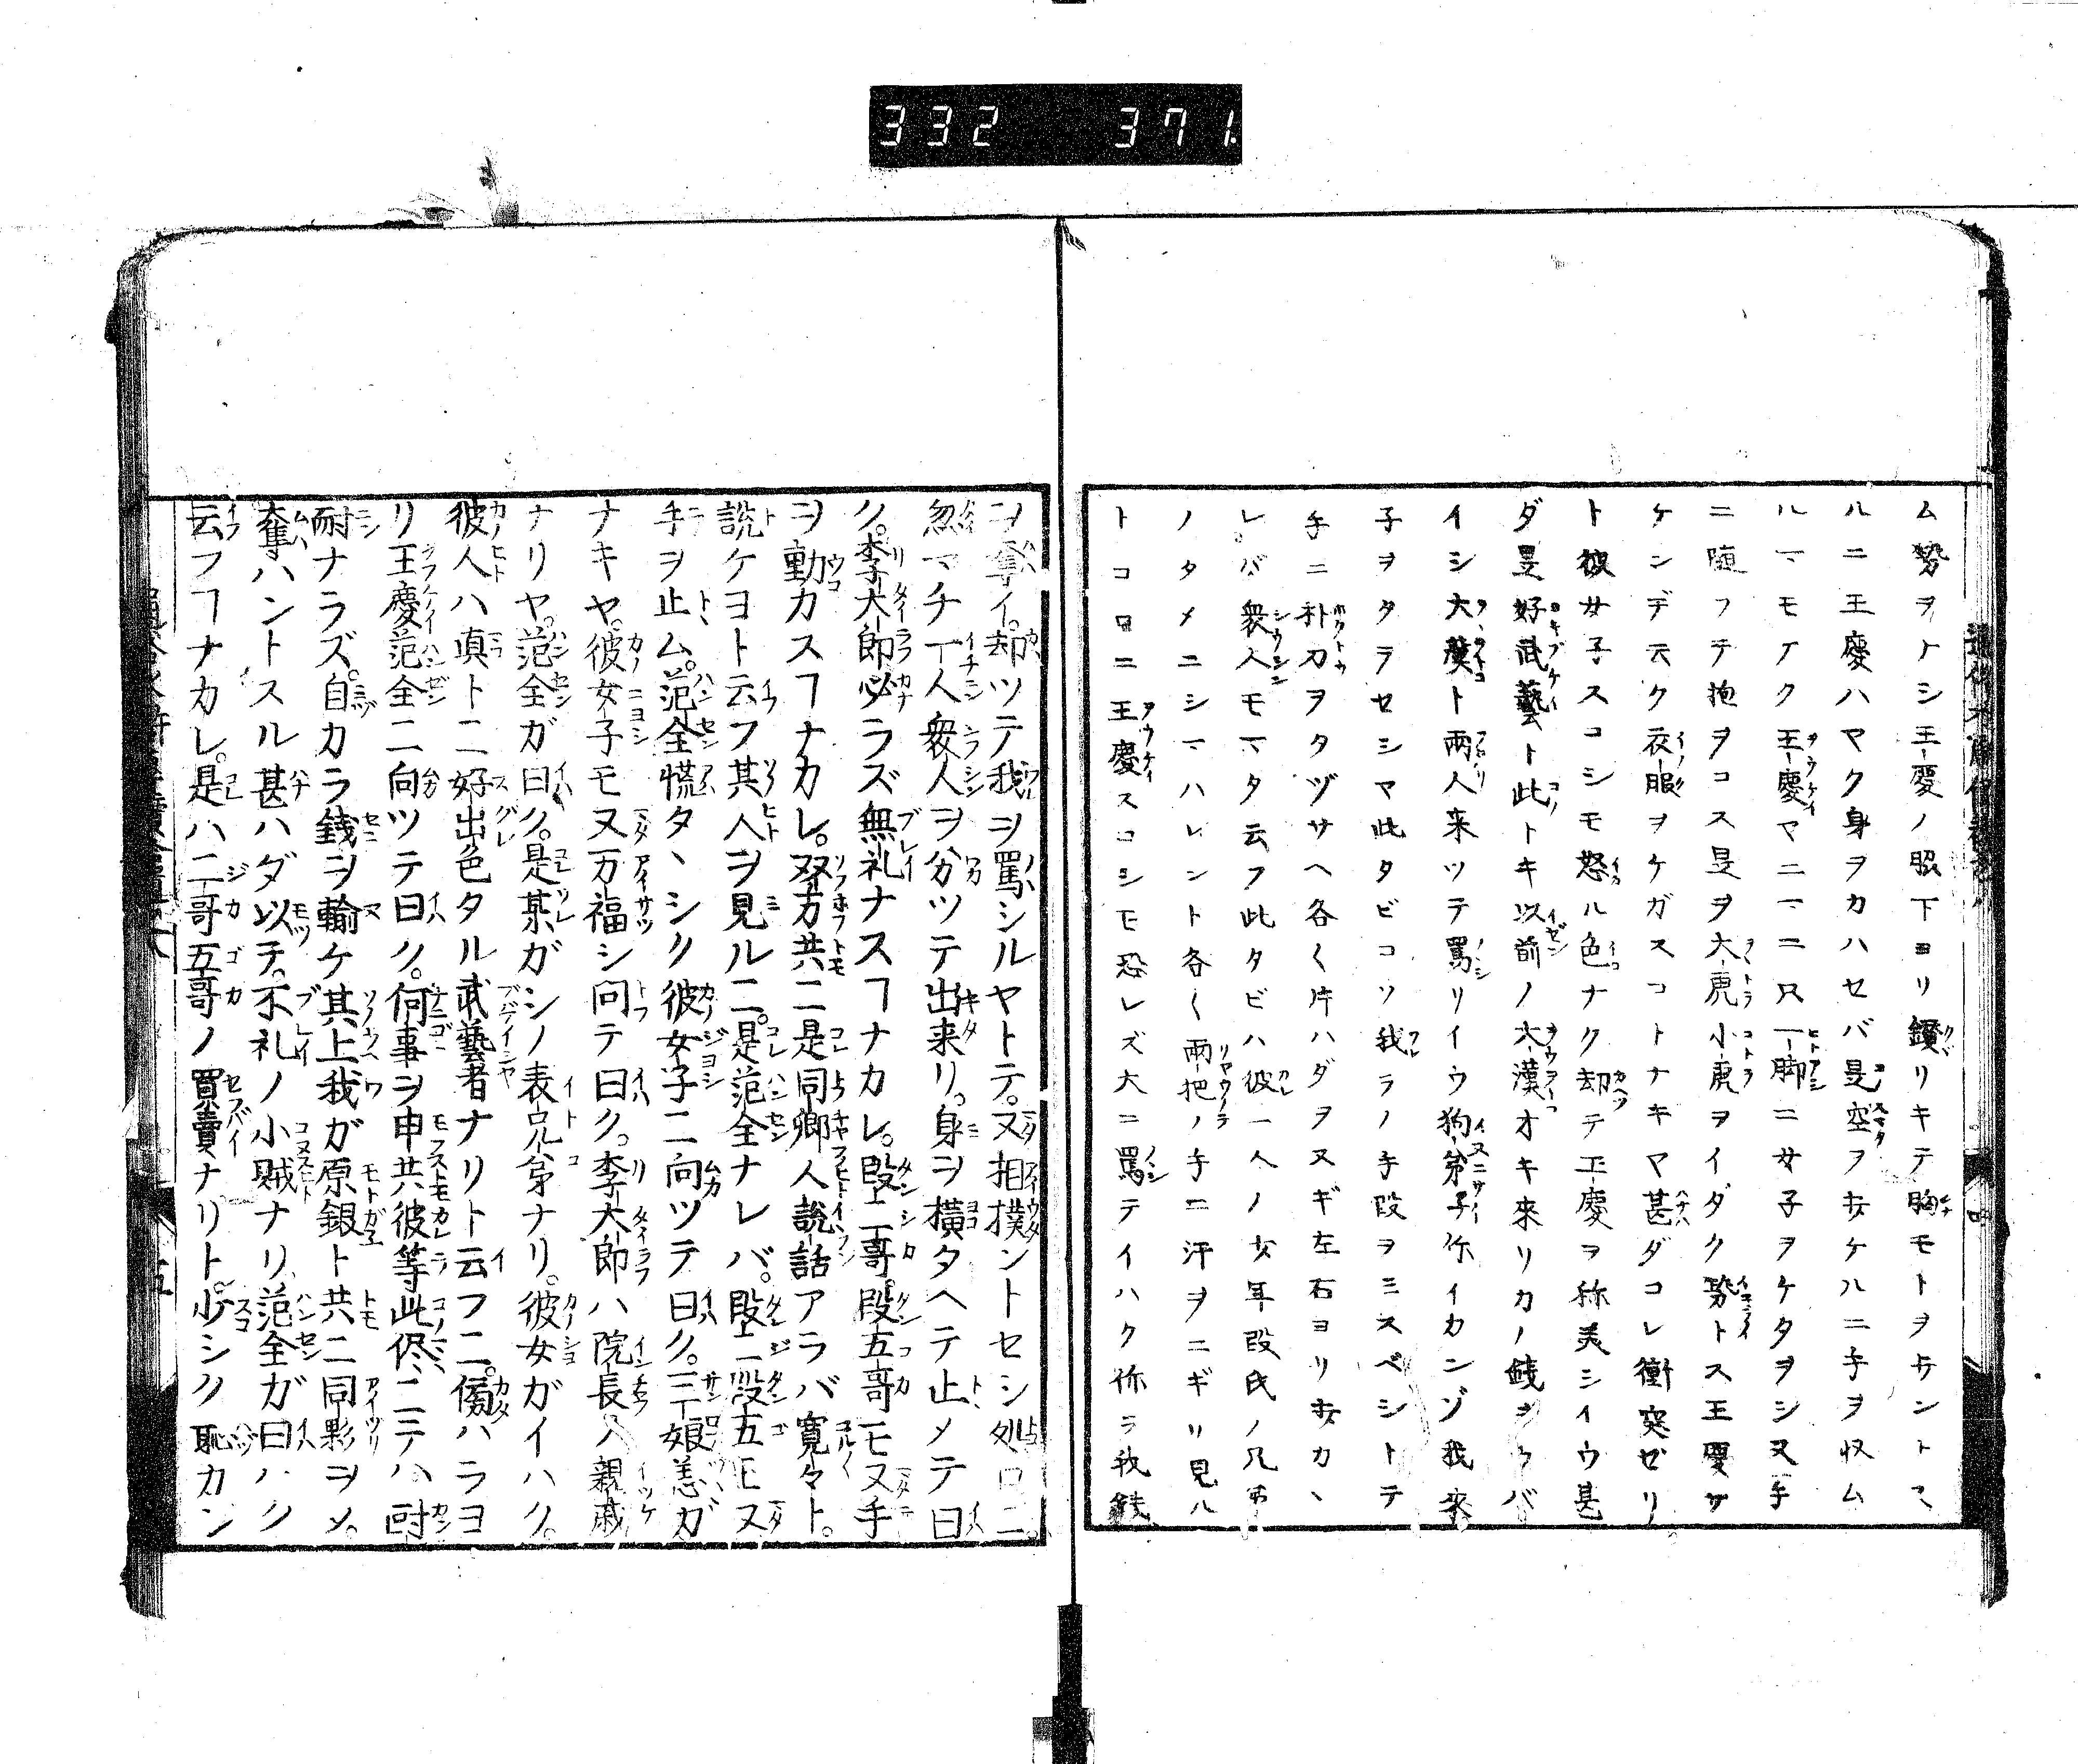 332 371
ム勢ヲナシ王慶ノ眼下ヨリ鑽リキテ胸モトヲ打ントス
ルニ王慶ハヤク身ヲカハセバ是空ヲ打ケルニ手ヲ収ム
ルマモナク王慶マニ一ニ只一脚ニ女子ヲケタヲシ又手
ニ随フテ抱ヲコス是ヲ大虎小虎ヲイダク勢トス王慶サ
ケンデ云ク衣服ヲケガスコトナキマ甚ダコレ衝突ゼリ
ト彼女子スコシモ怒ル色ナク却テ王慶ヲ称美シイウ甚
ダ是好武藝ト此トキ以前ノ大漢オキ來リカノ銭ヲウバ
イシ大漢ト兩人来ツテ罵リイウ狗弟子你イカンゾ我來
子ヲタヲセシマ此タビコソ我ラノ手段ヲミスベシトテ
手ニ朴刀ヲタヅサヘ各〱片ハダヲヌギ左右ヨリ打カヽ
レバ衆人モマタ云フ此タビハ彼一人ノ少年段氏ノ兄弟
ノタメニシマハレント各〱兩把ノ手ニ汗ヲニギリ見ル
トコロニ王慶スコシモ恐レズ大ニ罵テイハク你ラ我錢
ヲ奪イ。却ツテ我ヲ罵シルヤトテ。又相撲ントセシ処ロニ。
忽マチ一人衆人ヲ分ツテ出来リ。身ヲ横タヘテ止メテ曰
ク。李大郎必ラズ無礼ナスヿナカレ。段二哥。段五哥モ又手
ヲ動カスヿナカレ。双方共ニ是同郷人説話アラバ寛々ト。
説ケヨト云フ其人ヲ見ルニ。是范全ナレバ。段二段五モ又
手ヲ止ム。范全慌タヽシク彼女子ニ向ツテ曰ク。三娘恙ガ
ナキヤ。彼女子モ又万福シ問テ曰ク。李大郎ハ院長ノ親戚
ナリヤ。范全ガ曰ク。是某ガシノ表兄弟ナリ。彼女ガイハク。
彼人ハ真トニ好出色タル武藝者ナリト云フニ。傍ハラヨ
リ王慶范全ニ向ツテ曰ク。何事ヲ申共彼等此侭ニテハ耐
耐ナラズ。自カラ銭ヲ輸ケ其上我ガ原銀ト共ニ同夥ヲメ。
奪ハントスル甚ハダ以テ。不礼ノ小賊ナリ。范全ガ曰ハク
云フヿナカレ。是ハ二哥五哥ノ買賣ナリト。少シク恥カン
五